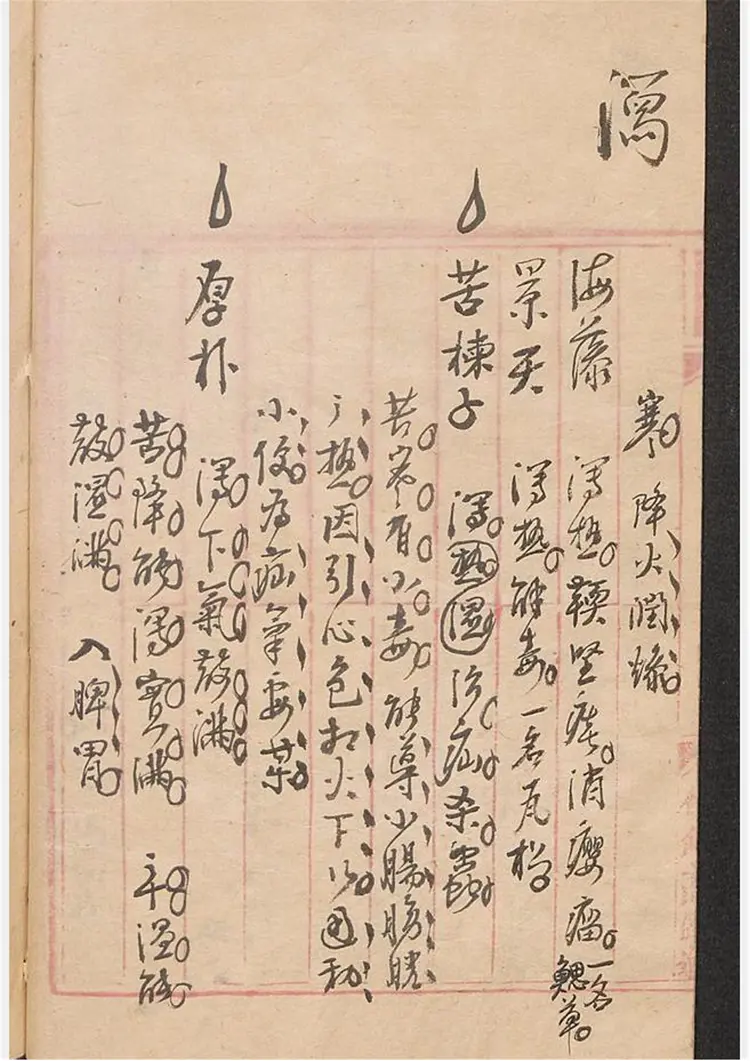 瀉
寒 降火潤燥
海藻 瀉热輭堅痰消癭瘤 一名
草
景天 瀉热解毒一名瓦松
苦楝子 瀉热湿治疝杀蟲
苦寒有小毒能導小腸膀胱
之热因引心包相火下行通利
小便為疝氣要药
厚朴 瀉下氣散满
苦降能瀉實满 辛温能
散湿满 入脾胃